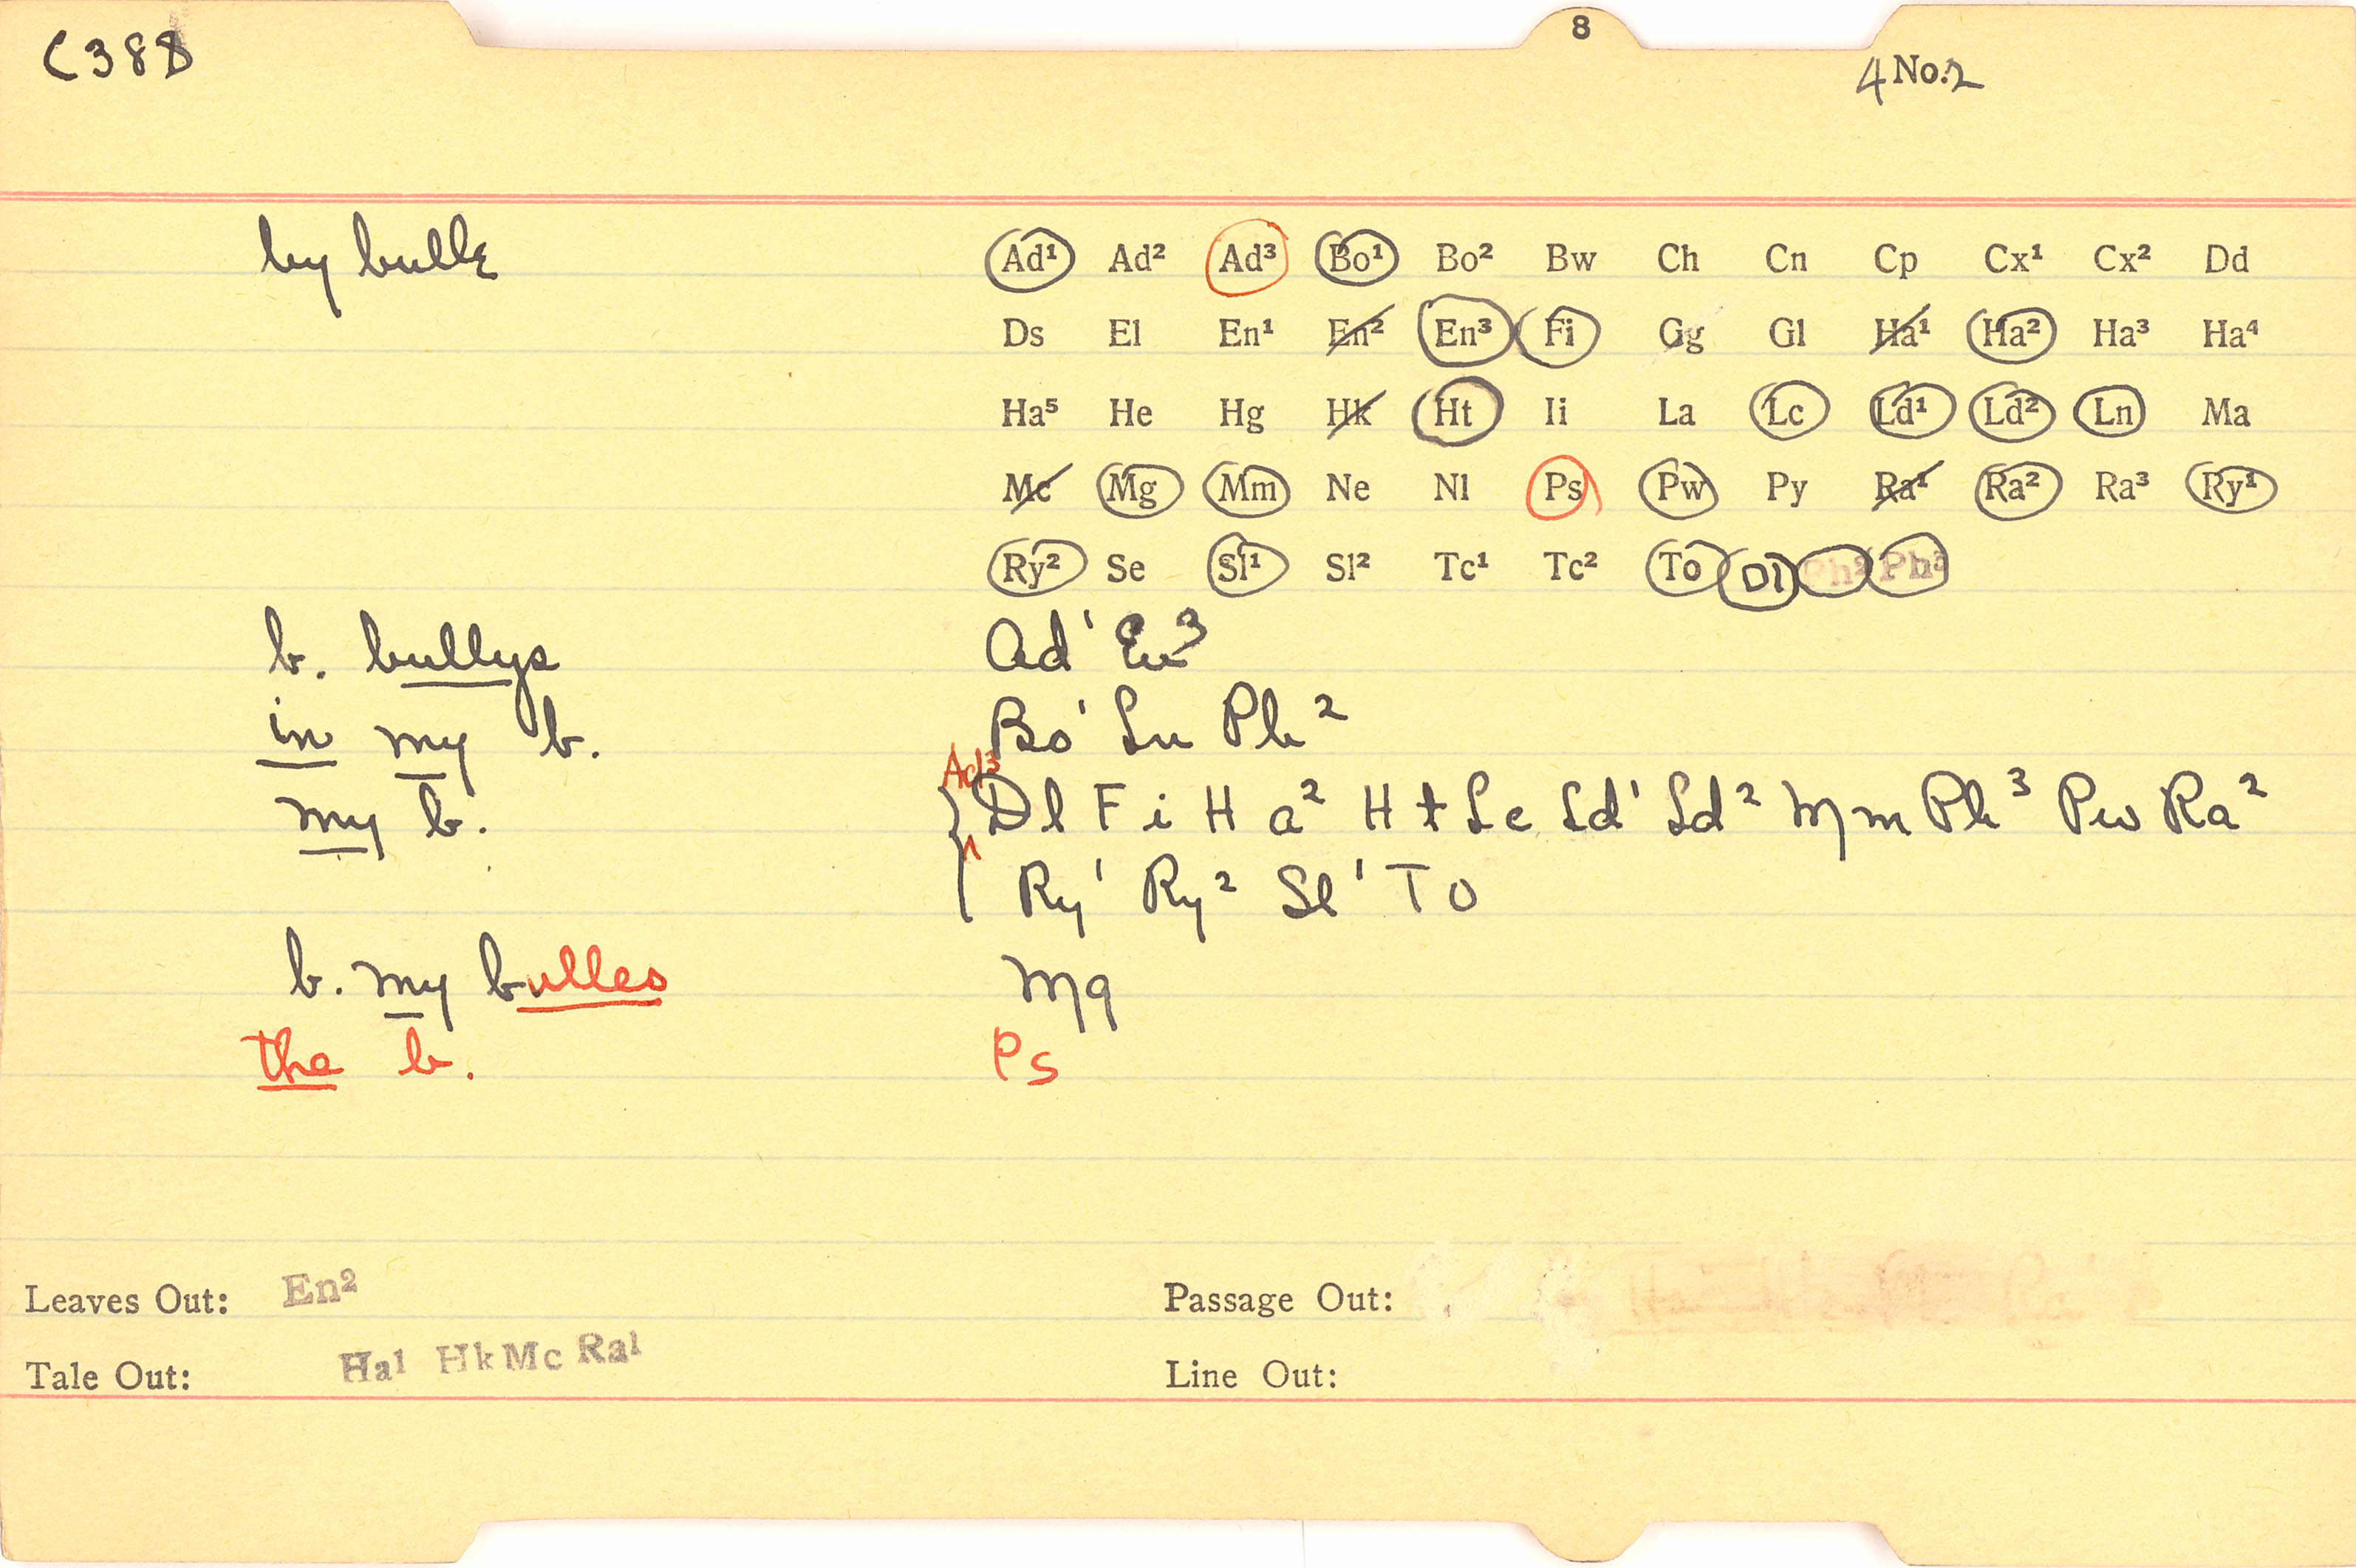 C 388
8
4 No. 2
by bulle
Ad¹ Ad² Ad³ Bo¹ Bo² Bw Ch Cn Cp Cx¹ Cx² Dd
Ds El En¹ En² En³ Fi Gg Gl Ha¹ Ha² Ha³ Ha⁴
Ha⁵ He Hg Hk Ht Ii La Lc Ld¹ Ld² Ln Ma
Mc Mg Mm Ne Nl Ps Pw Py Ra¹ Ra² Ra³ Ry¹
Ry² Se Sl¹ Sl² Tc¹ Tc² To Dl Ph² Ph³
b. bullys Ad¹ En³
in my b. Bo¹ Ln Ph²
Ad³
my b. Dl Fi Ha² Ht Lc Ld¹ Ld² Mm Ph³ Pw Ra²
Ry¹ Ry² Sl¹ To
b. my bulles Mg
the b. Ps
Leaves Out: En² Passage Out:
Tale Out: Ha¹ Hk Mc Ra¹ Line Out: